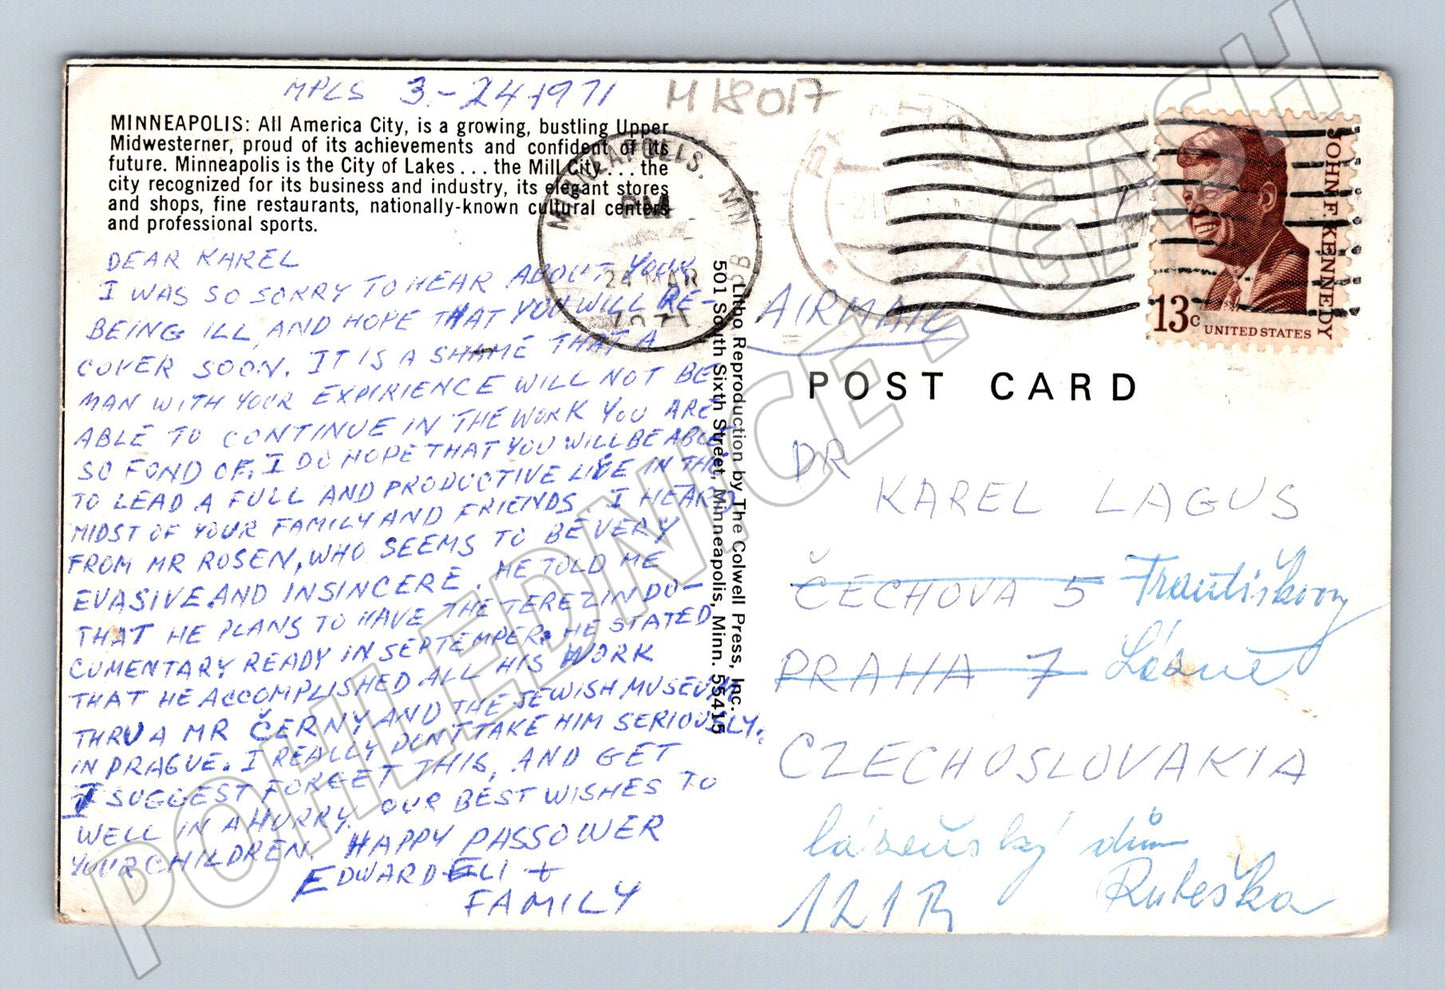 MPLS 3-24-1971
M18017
MINNEAPOLIS: All America City, is a growing, bustling Upper
Midwesterner, proud of its achievements and confident of its
future. Minneapolis is the City of Lakes . . . the Mill City . . . the
city recognized for its business and industry, its elegant stores
and shops, fine restaurants, nationally-known cultural centers
and professional sports.
DEAR KAREL
I WAS SO SORRY TO HEAR ABOUT YOUR
BEING ILL, AND HOPE THAT YOU WILL RE-
COVER SOON. IT IS A SHAME THAT A
MAN WITH YOUR EXPIRIENCE WILL NOT BE
ABLE TO CONTINUE IN THE WORK YOU ARE
SO FOND OF. I DO HOPE THAT YOU WILL BE ABLE
TO LEAD A FULL AND PRODUCTIVE LIFE IN THE
MIDST OF YOUR FAMILY AND FRIENDS. I HEARD
FROM MR ROSEN, WHO SEEMS TO BE VERY
EVASIVE AND INSINCERE. HE TOLD ME
THAT HE PLANS TO HAVE THE TEREZIN DO-
CUMENTARY READY IN SEPTEMPER. HE STATED
THAT HE ACCOMPLISHED ALL HIS WORK
THRU A MR ČERNY AND THE JEWISH MUSEUM
IN PRAGUE. I REALLY DON'T TAKE HIM SERIOUSLY.
I SUGGEST FORGET THIS, AND GET
WELL IN A HURRY. OUR BEST WISHES TO
YOUR CHILDREN. HAPPY PASSOWER
EDWARD ELI +
FAMILY
Litho Reproduction by The Colwell Press, Inc.
501 South Sixth Street, Minneapolis, Minn. 55415
MINNEAPOLIS, MN
PM
24 MAR
1971
AIRMAIL
JOHN F. KENNEDY
13c UNITED STATES
POST CARD
DR
KAREL LAGUS
ČECHOVA 5 Františkovy
PRAHA 7 Lázně
CZECHOSLOVAKIA
lázeňský dům
121B Rubeška
POHLEDNICE - GASH